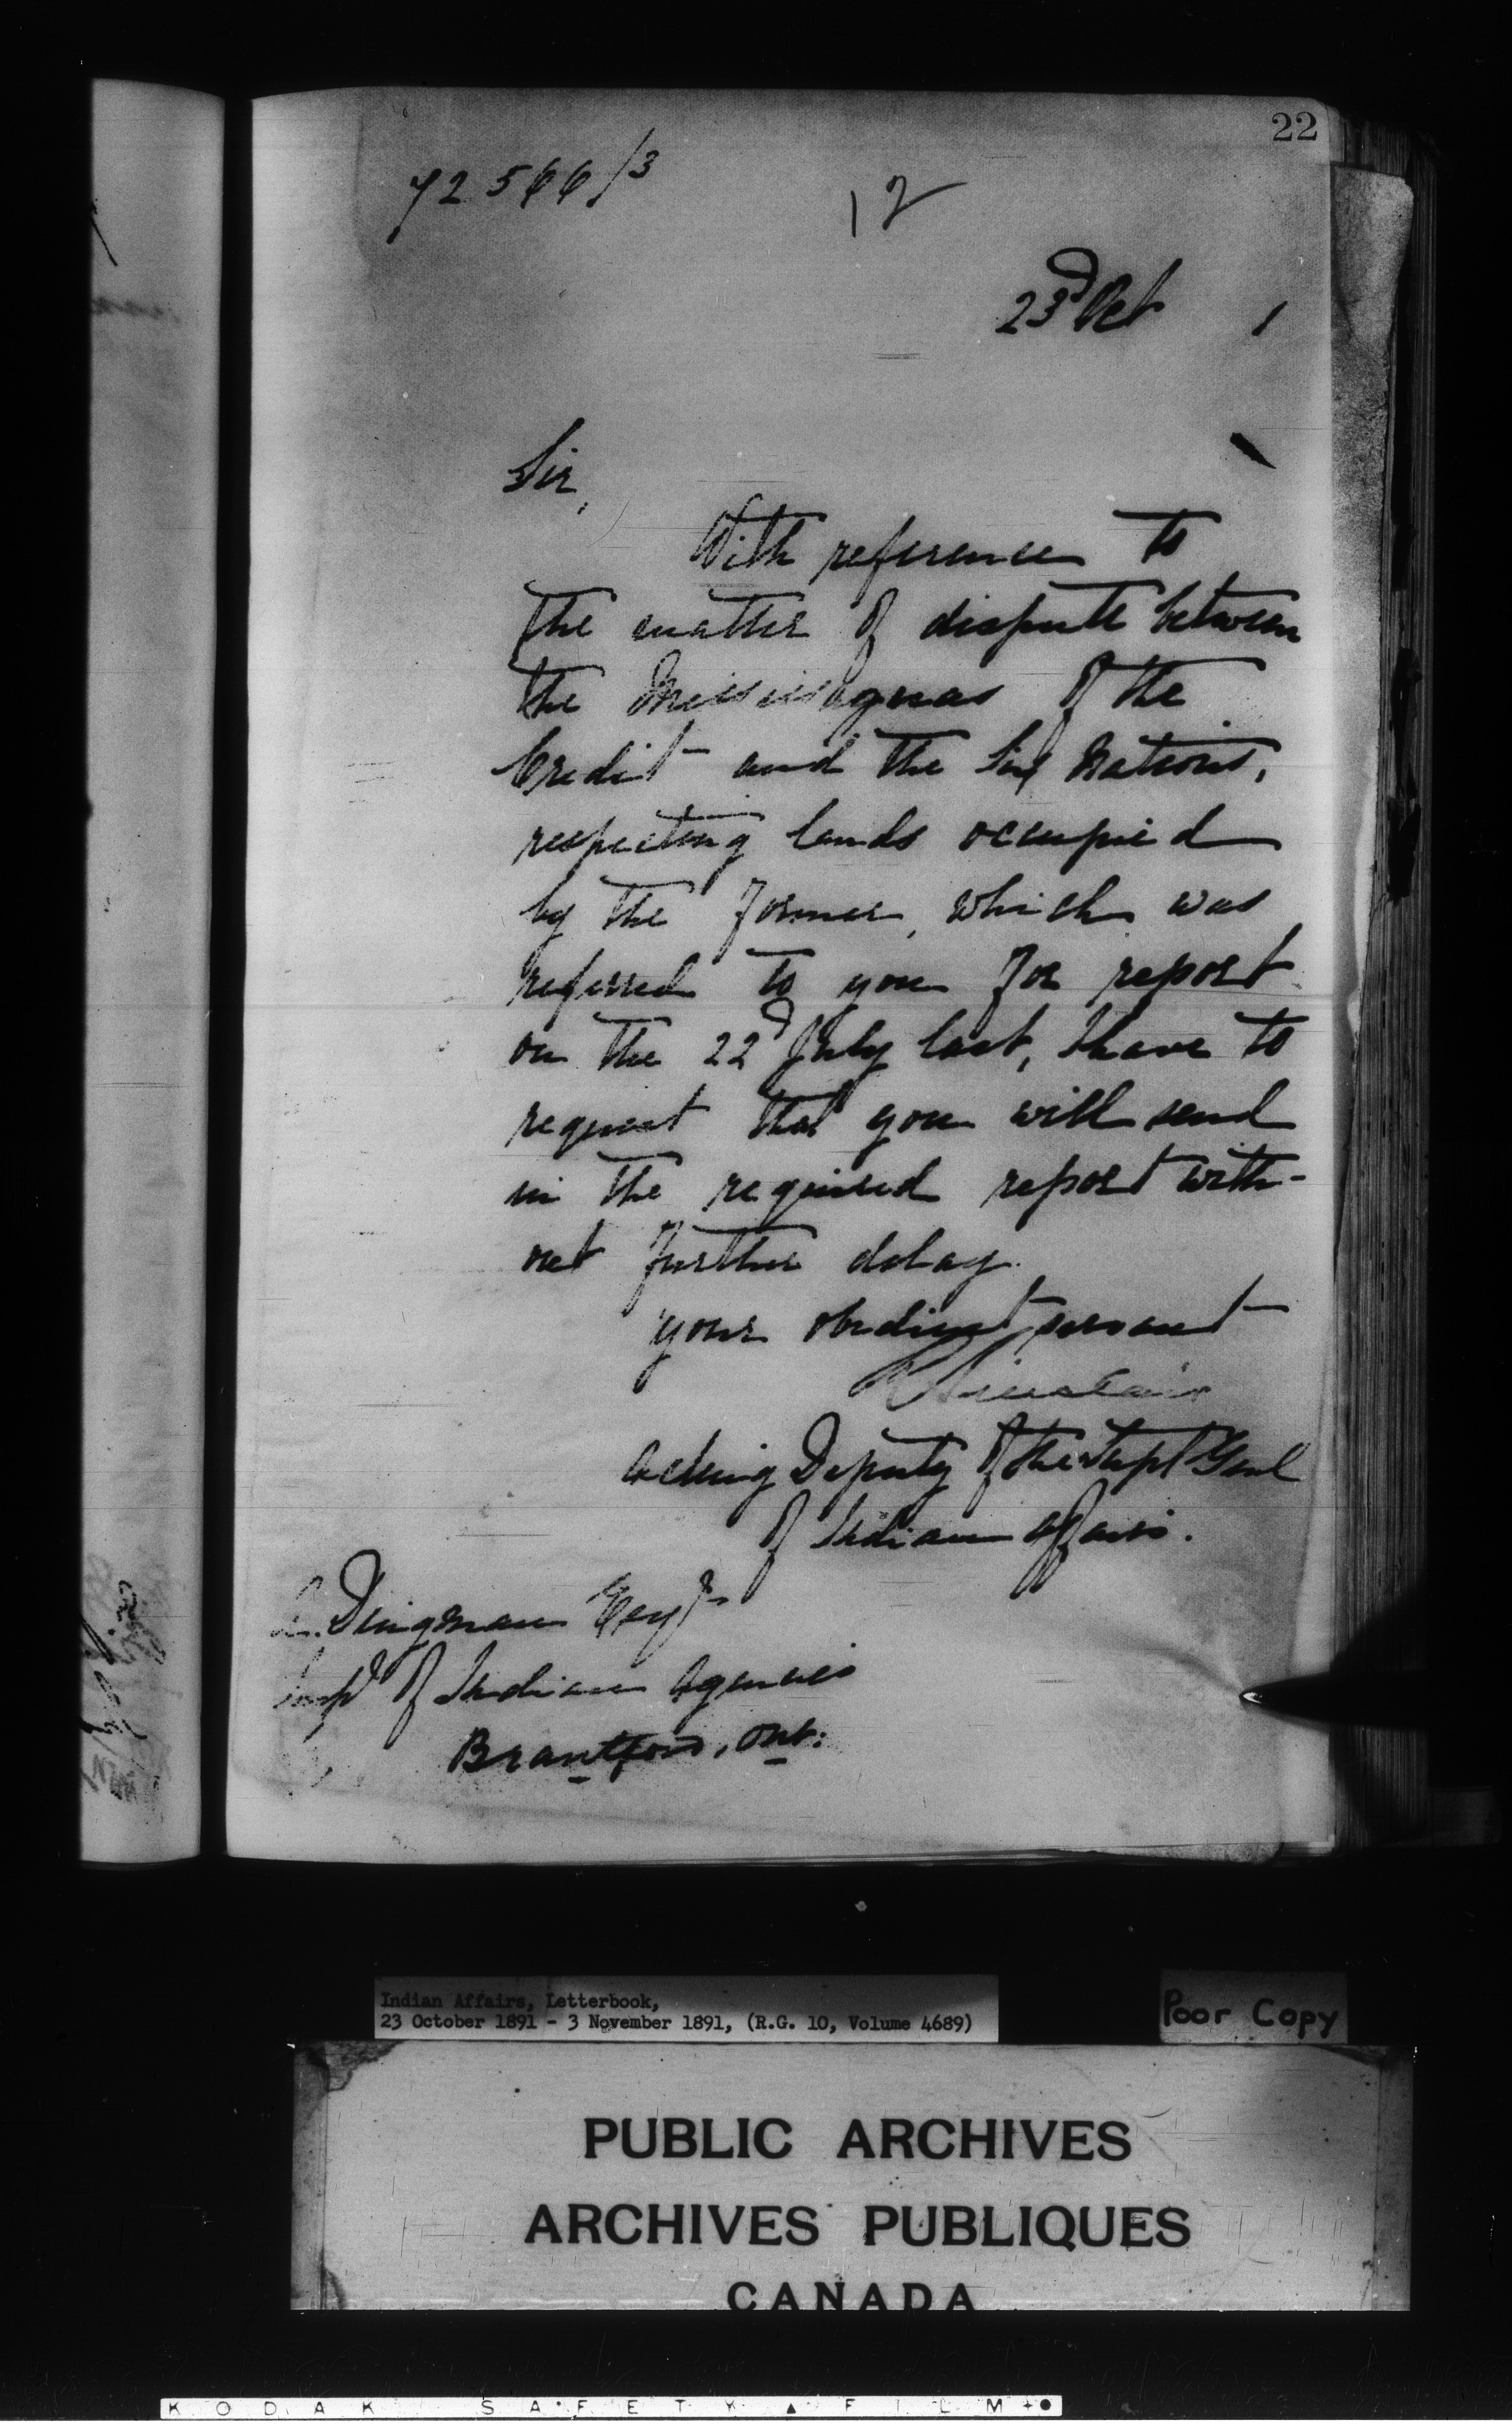 22
72566/3
12
23d Oct 1
Sir,
With reference to
the matter of dispute between
the Mississaguas of the
Credit and the Six Nations,
respecting lands occupied
by the former, which was
referred to you for report
on the 22d July last, I have to
request that you will send
in the required report with-
out further delay.
your obedient servant
Sinclair
Acting Deputy of the Supt Genl
of Indian Affairs.
Dingman Esqr
Insp of Indian Agencies
Brantford, Ont:
Indian Affairs, Letterbook,
23 October 1891 - 3 November 1891, (R.G. 10, Volume 4689)
Poor Copy
PUBLIC ARCHIVES
ARCHIVES PUBLIQUES
CANADA
KODAK SAFETY ▲ FILM